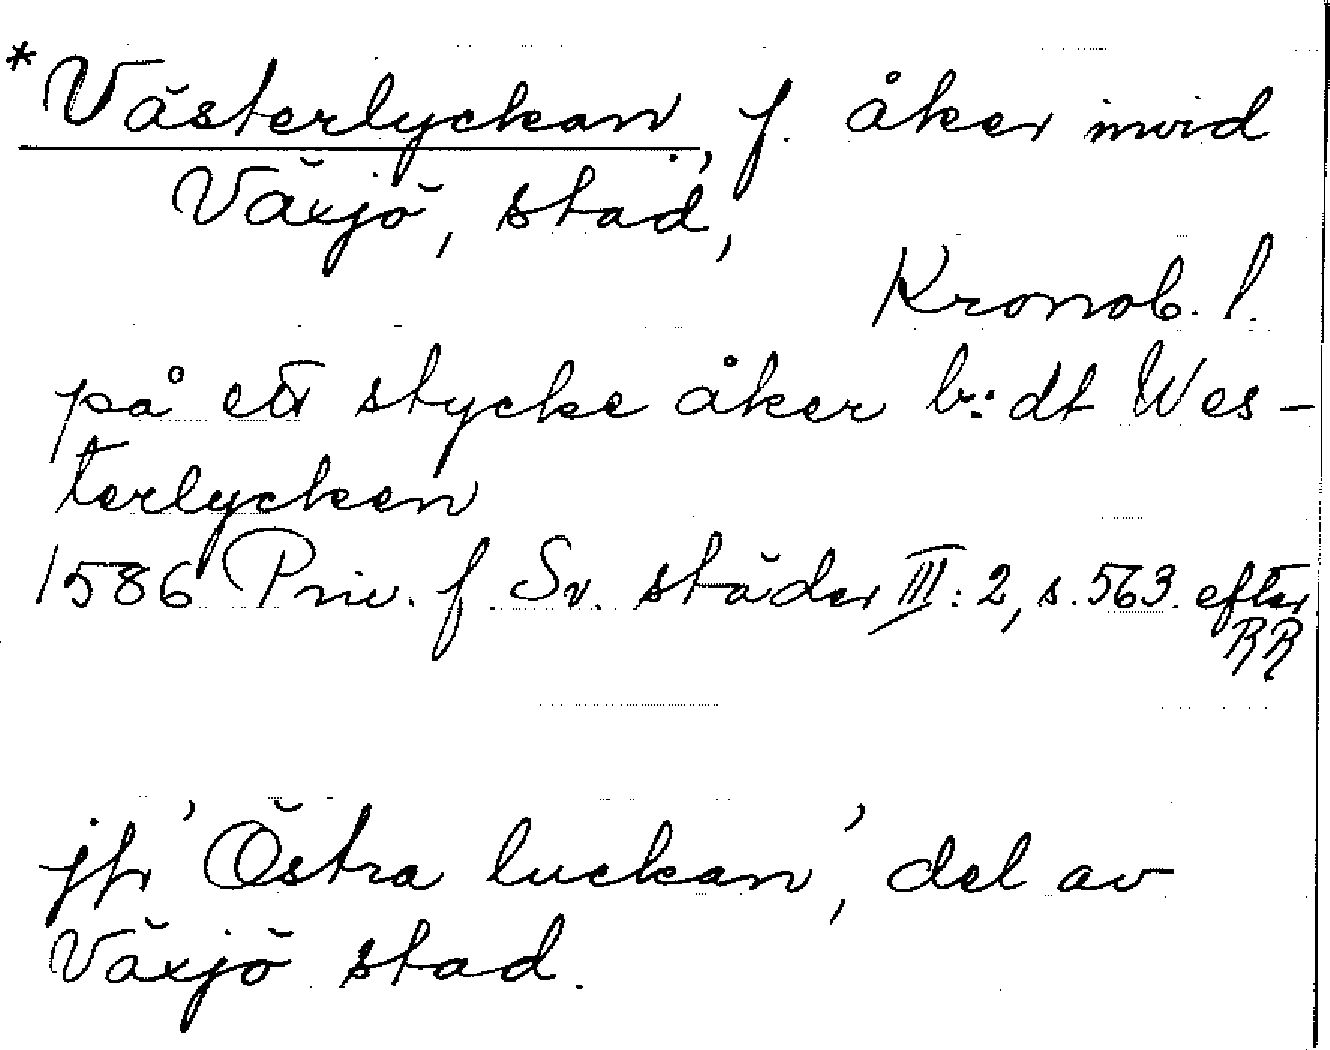 *Västerlyckan, f. åker invid
Växjö, stad,
Kronob. l.
på ett stycke åker b:dt Wes-
terlycken
1586 Priv. f Sv. städer III: 2, s. 563 efter
RR
jfr 'Östra luckan', del av
Växjö stad.